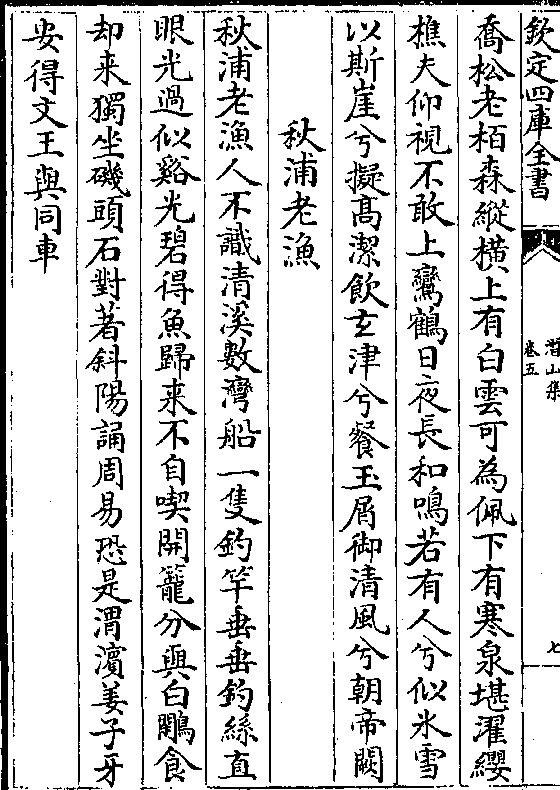 欽定四庫全書
潛山集
卷五
七
喬松老栢森縱橫上有白雲可為佩下有寒泉堪濯纓
樵夫仰視不敢上鸞鶴日夜長和鳴若有人兮似氷雪
以斯崖兮擬髙潔飲玄津兮餐玉屑御清風兮朝帝闕
秋浦老漁
秋浦老漁人不識清溪數灣船一隻釣竿垂垂釣絲直
眼光過似谿光碧得魚歸来不自喫開籠分與白鷴食
却来獨坐磯頭石對著斜陽誦周易恐是渭濵姜子牙
安得文王與同車